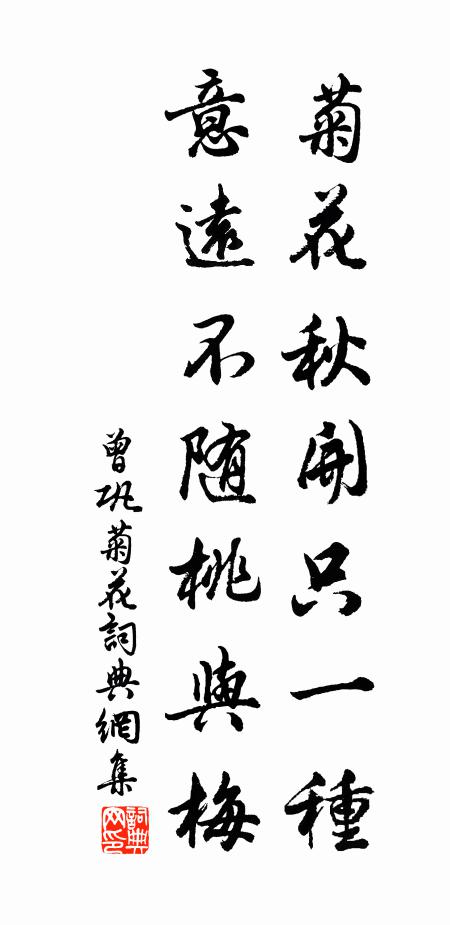 菊花秋開只一種
意遠不随桃與梅
曾巩菊花詞典網集
詞典网印